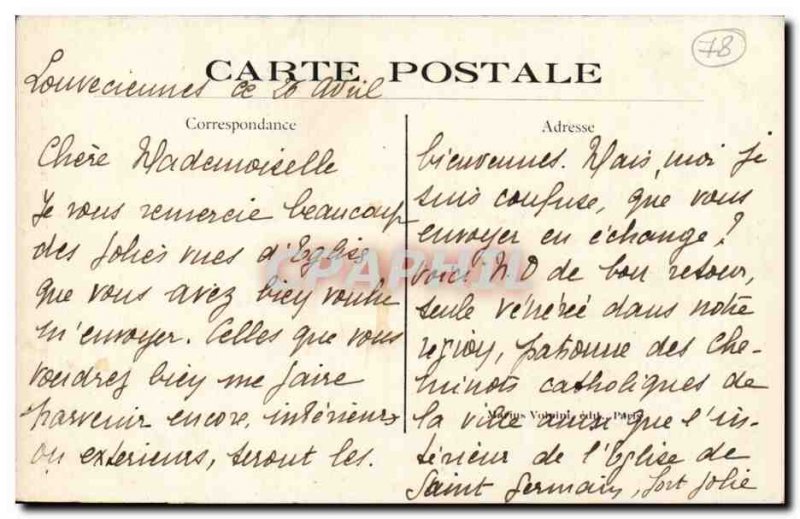 78
CARTE POSTALE
Louveciennes ce 26 Avril
Correspondance
Chère Mademoiselle
Je vous remercie beaucoup
des jolies vues d'Eglise
que vous avez bien voulu
m'envoyer. Celles que vous
voudrez bien me faire
parvenir encore, intérieurs
ou extérieurs, seront les.
Adresse
bienvennes. Mais, moi je
suis confuse, que vous
envoyer en échange?
voici N.D de bon retour,
seule vénérée dans notre
région, patronne des Che-
minots catholiques de
la ville ainsi que l'in-
térieur de l'Eglise de
Saint Germain, fort jolie
Marius Volpini, édit., Paris
CPAPHIL